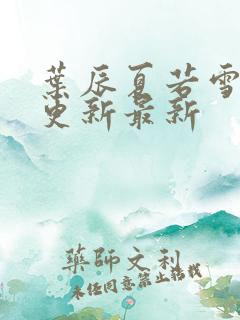 葉辰夏若雪
更新最新
藥師文利
未经同意禁止搭载